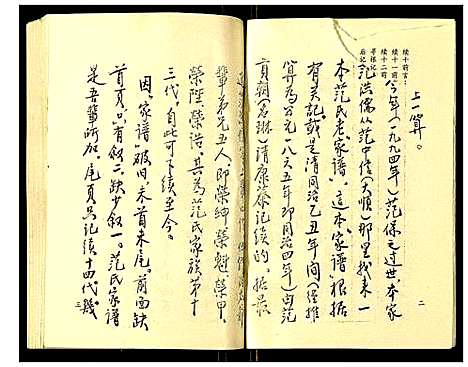 上一算。
续十前言：
续十一前
续十二前
寻根记
后记
今年（一九九四年）范保之过世，本家
范洪儒从范中信（大顺）那里找来一
本范氏老“家谱”，这本“家谱”根据
有关记载是清同治乙丑年间（经推
算为公元一八六五年即同治四年）由范
贡朝（名琳）清康
记续的，据最
二
辈弟兄五人，即荣绅、荣魁、荣甲、
荣陞、荣浩，其为范氏家族第十
三代，自此可下续至今。
因“家谱”破旧，未首未尾，前面缺
首页，只有叙二，缺少叙一。范氏家谱
是吾辈所加，尾页只记续十四代，几
三